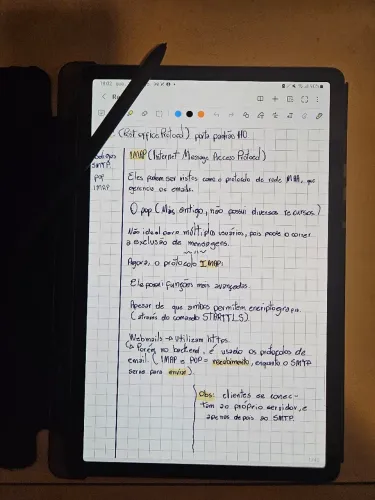 (Post office Protocol) porta padrão 110
SMTP.
pop
IMAP
IMAP (Internet Message Access Protocol)
Eles podem ser vistos como o protocolo de rede MAA, que
gerencia os emails.
O pop (Mais antigo, não possui diversos recursos)
Não ideal para múltiplos usuários, pois pode ocorrer
a exclusão de mensagens.
Agora, o protocolo IMAP:
Ele possui funções mais avançadas.
Apesar de que ambos permitem encriptografia
(através do comando STARTTLS).
Webmails → utilizam https.
↳ Porém no backend, é usado os protocolos de
email (IMAP e POP = recebimento, enquanto o SMTP
serve para enviar).
Obs: clientes se conec-
tam ao próprio servidor, e
apenas depois ao SMTP.